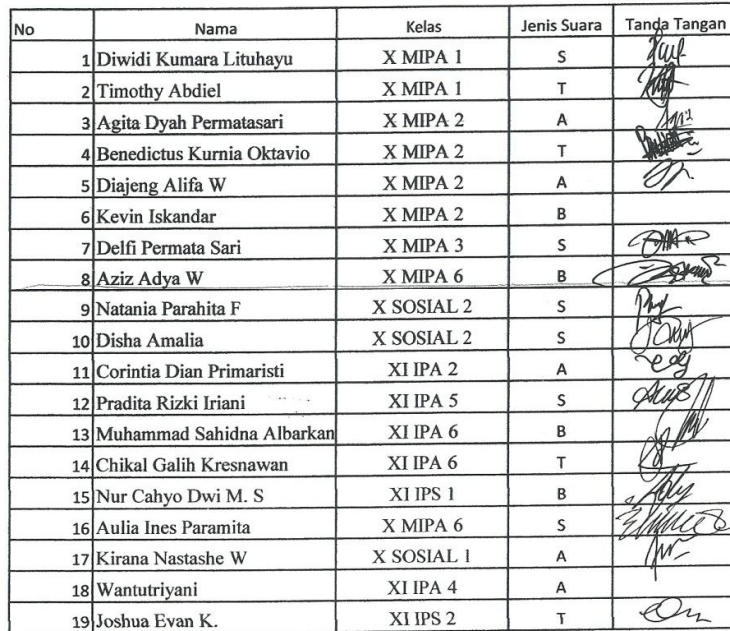 No Nama Kelas Jenis Suara Tanda Tangan
1 Diwidi Kumara Lituhayu X MIPA 1 S
2 Timothy Abdiel X MIPA 1 T
3 Agita Dyah Permatasari X MIPA 2 A
4 Benedictus Kurnia Oktavio X MIPA 2 T
5 Diajeng Alifa W X MIPA 2 A
6 Kevin Iskandar X MIPA 2 B
7 Delfi Permata Sari X MIPA 3 S
8 Aziz Adya W X MIPA 6 B
9 Natania Parahita F X SOSIAL 2 S
10 Disha Amalia X SOSIAL 2 S
11 Corintia Dian Primaristi XI IPA 2 A
12 Pradita Rizki Iriani XI IPA 5 S
13 Muhammad Sahidna Albarkan XI IPA 6 B
14 Chikal Galih Kresnawan XI IPA 6 T
15 Nur Cahyo Dwi M. S XI IPS 1 B
16 Aulia Ines Paramita X MIPA 6 S
17 Kirana Nastashe W X SOSIAL 1 A
18 Wantutriyani XI IPA 4 A
19 Joshua Evan K. XI IPS 2 T